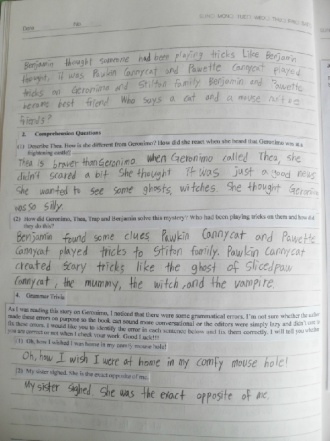 Date No.
Benjamin thought someone had been playing tricks. Like Benjamin
thought, it was Pawkin Cannycat and Pawette Cannycat played
tricks on Geronimo and Stilton family. Benjamin and Pawette
became best friend. Who says a cat and a mouse can't be
friends?
3. Comprehension Questions
(1) Describe Thea. How is she different from Geronimo? How did she react when she heard that Geronimo was in a
frightening castle?
Thea is braver than Geronimo. When Geronimo called Thea, she
didn't scared a bit. She thought it was just a good news.
She wanted to see some ghosts, witches. She thought Geronimo
was so silly.
(2) How did Geronimo, Thea, Trap and Benjamin solve this mystery? Who had been playing tricks on them and how did
they do this?
Benjamin found some clues. Pawkin Cannycat and Pawette
Cannycat played tricks to Stilton family. Pawkin Cannycat
created scary tricks like the ghost of Slicedpaw
Cannycat, the mummy, the witch, and the vampire.
4. Grammar Trivia
As I was reading this story on Geronimo, I noticed that there were some grammatical errors. I'm not sure whether the author
made these errors on purpose so the book can sound more conversational or the editors were simply lazy and didn't care to
fix these errors. I would like you to identify the error in each sentence below and fix them correctly. I will tell you whether
you are correct or not when I check your work. Good Luck!!!
(1) Oh, how I wished I was home in my comfy mouse hole!
Oh, how I wish I were at home in my comfy mouse hole!
(2) My sister sighed. She is the exact opposite of me.
My sister sighed. She was the exact opposite of me.